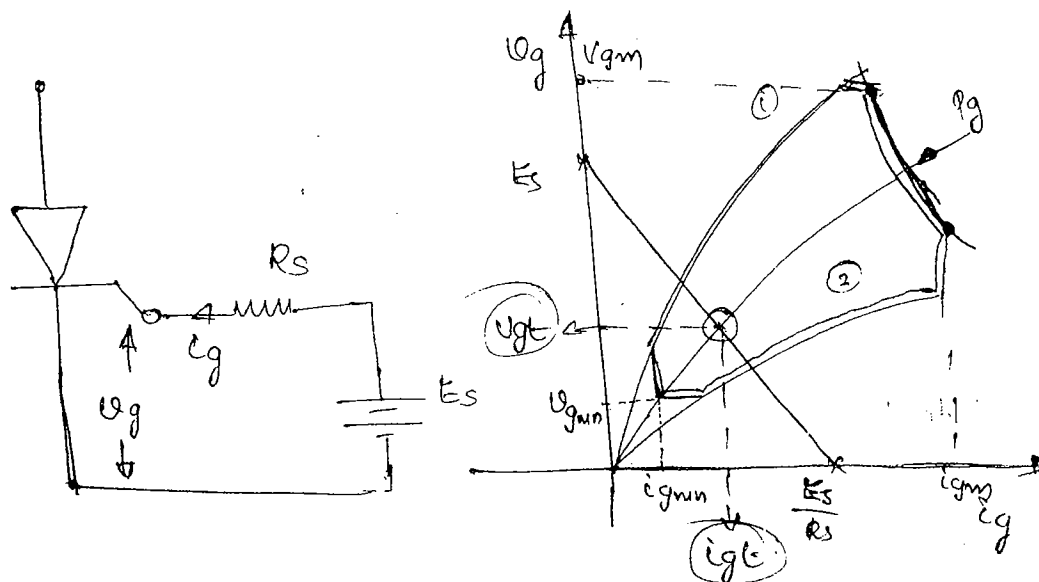 Rs
ig
vg
Es
vg
vgm
①
Pg
Es
②
vgt
vgmn
igmn
Es/Rs
igm
ig
igt